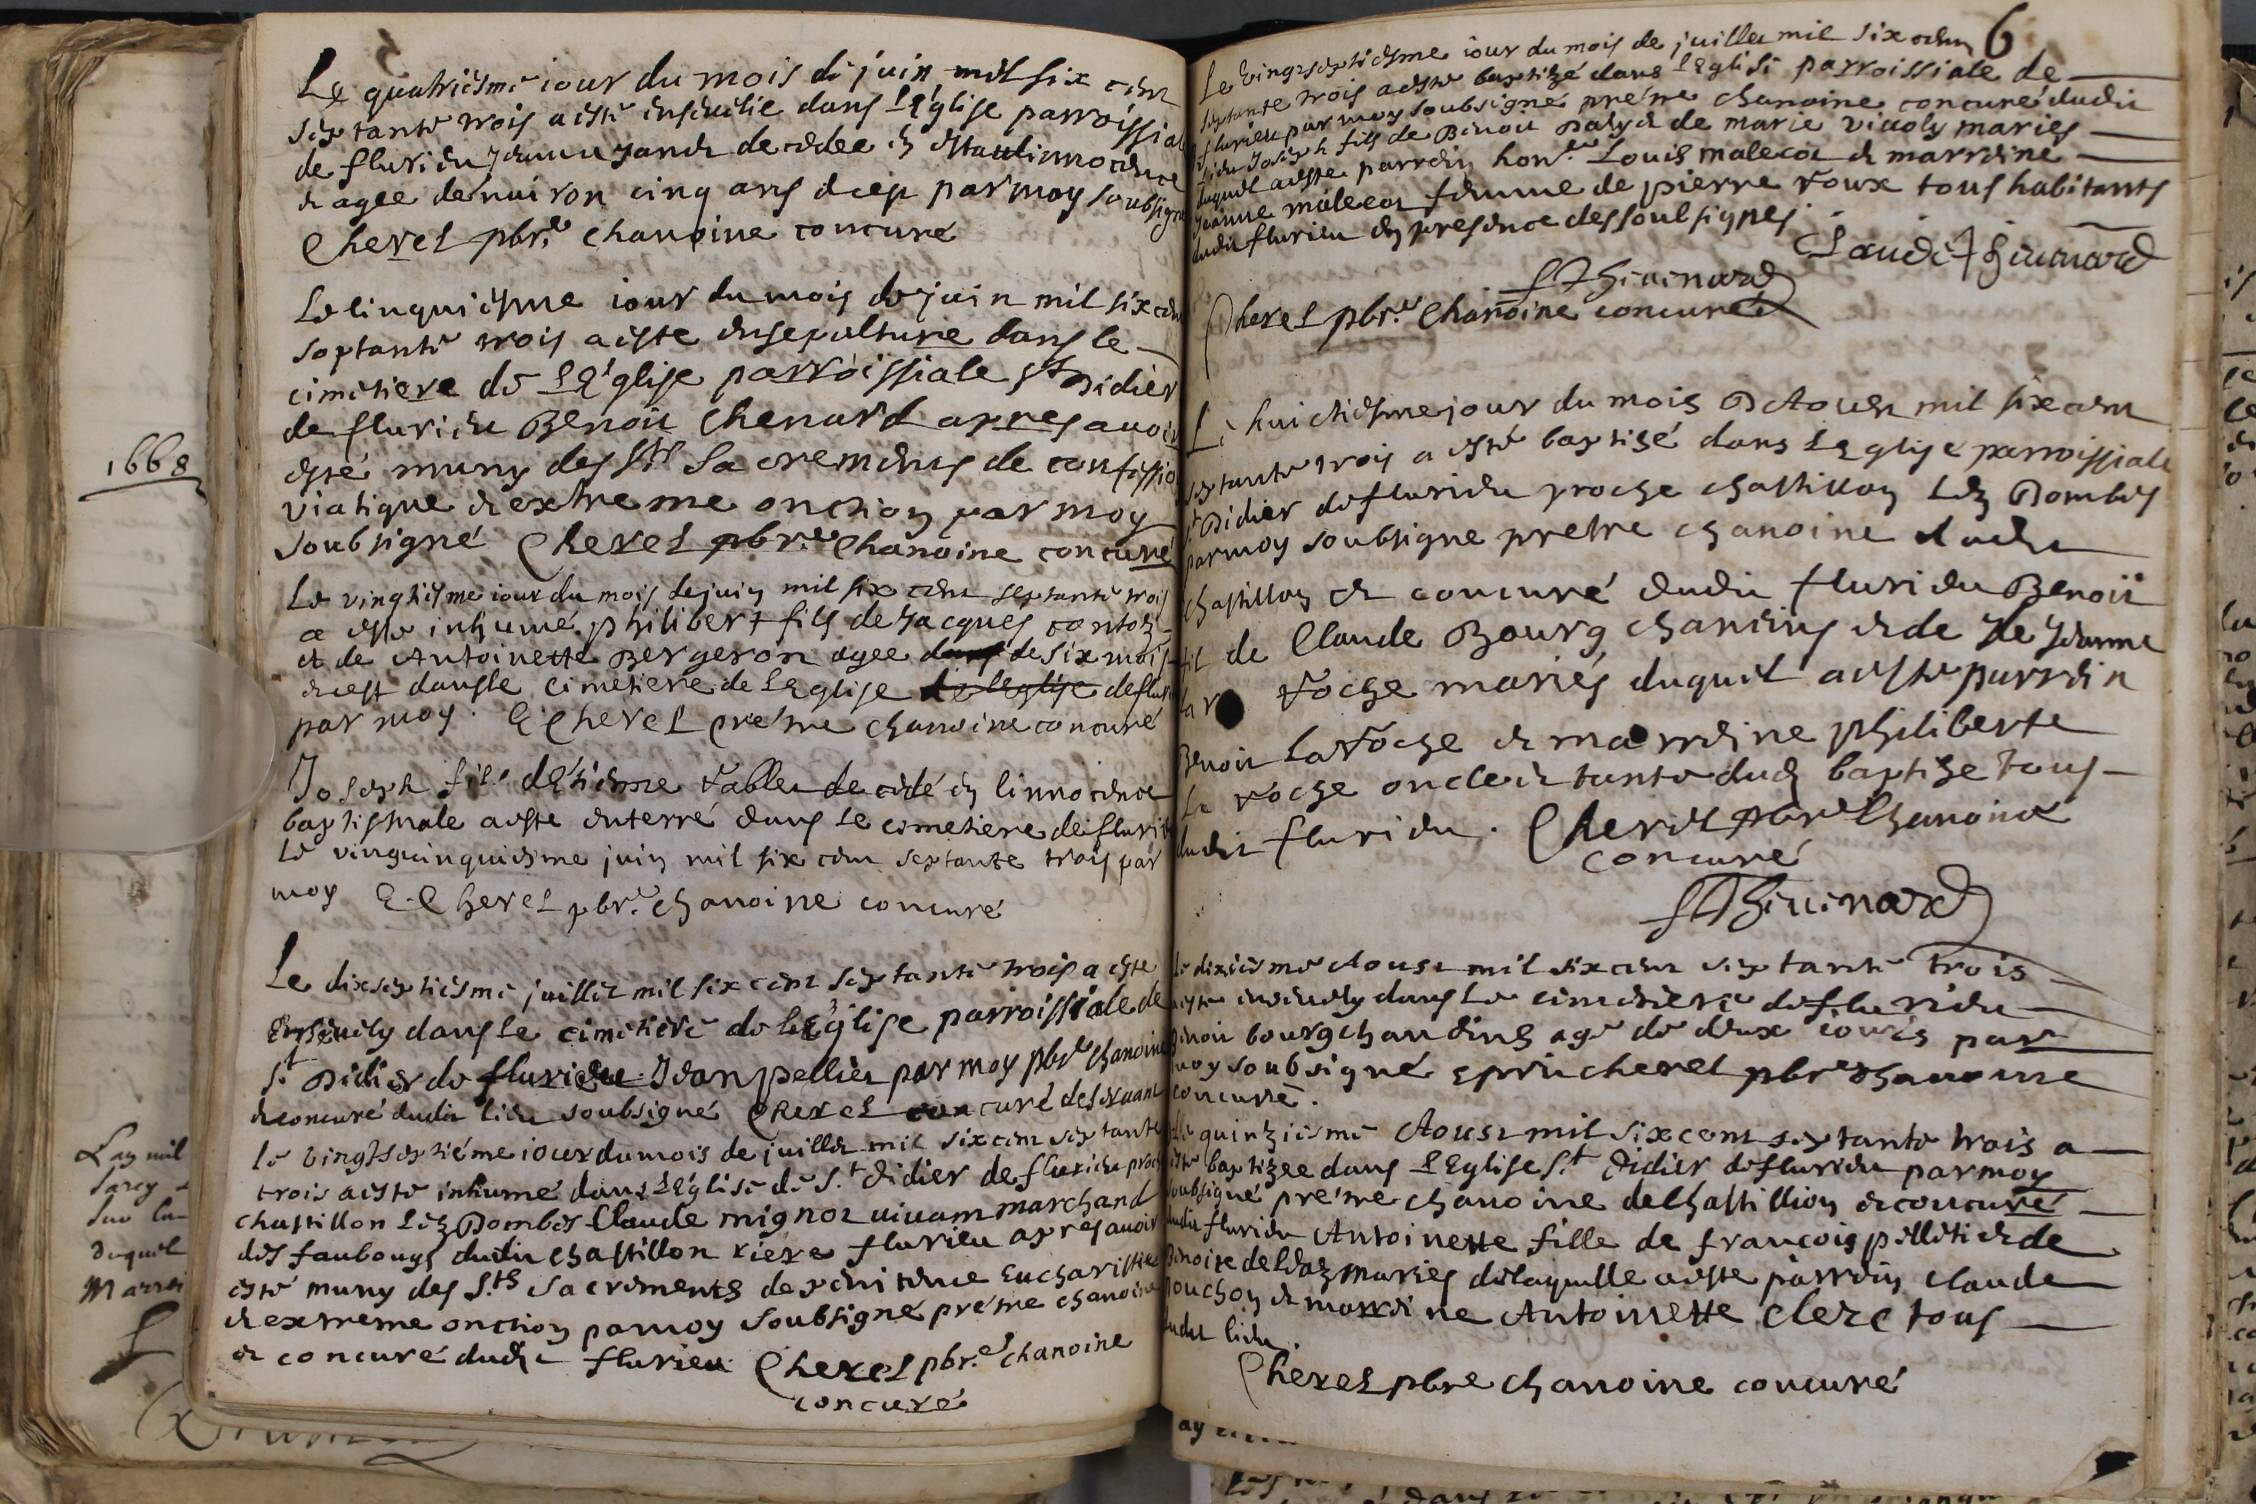 Le quatriesme iour du mois de juin mil six cent
septante trois a esté ensevelie dans l'Eglise parroissial
de flurieu Jeanne decedee en estat innocence
et agee denviron cinq ans et ce par moy soubsigné
Cheret pbre chanoine concuré
Le cinquiesme iour du mois de juin mil six cent
septante trois a esté ensepulturé dans le
cimetiere de l'Eglise parroissiale St Didier
de flurieu Benoit Chenard apres avoir
esté muny des Sts Sacrements de confessio
viatique et extreme onction par moy
soubsigné Cheret pbre Chanoine concuré
Le vingtiesme iour du mois de juin mil six cent septante trois
a esté inhumé philibert fils de Jacques
et de Antoinette Bergeron agee de six mois
et est dans le cimetiere de l'Eglise de l'eglise de flur
par moy E Cheret pretre chanoine concuré
Joseph fils d'etienne Vallet decedé en linnocence
baptismale a esté enterré dans le cimetiere de fluri
le vingtcinquiesme juin mil six cent septante trois par
moy E Cheret pbre chanoine concuré
Le dixseptiesme juillet mil six cent septante trois a esté
Ensevely dans le cimetiere de l'Eglise parroissiale de
St Didier de flurieu Jean pellier par moy pbre chanoine
et concuré dudit lieu soubsigné Cheret concuré desservant
le vingtseptiéme iour du mois de juillet mil six cent septante
trois a esté inhumé dans l'Eglise de St Didier de flurieu proch
chastillon lez Dombes Claude mignot vivant marchand
des faubougs dudit chastillon riere flurieu apres avoir
esté muny des Sts Sacrements de penitence Eucharistie
et extreme onction par moy soubsigné pretre chanoine
et concuré dudit flurieu Cheret pbre chanoine
concuré
1668
Lan mil
duquel
Marrei
6
Le vingtseptiesme iour du mois de juillet mil six cent
septante trois a esté baptizé dans l'Eglise parroissiale de
flurieu par moy soubsigné pretre chanoine concuré dudit
lieu Joseph fils de Benoit et de marie mariés
duquel a esté parrein honle Louis malecot et marreine
Jeanne malecot femme de pierre roux tous habitants
dudit flurieu en presence des soubsignes
Claude Thevenard
Thevenard
Cheret pbre Chanoine concuré
Le huictiesme jour du mois D'Aoust mil six cent
septante trois a esté baptisé dans l'Eglise parroissiale
St Didier de flurieu proche chastillon lez Dombes
par moy soubsigné pretre chanoine dudit
chastillon et concuré dudit flurieu Benoit
fil de Claude Bourg chanins et de Jeanne
la roche mariés duquel a esté parrein
Benoit la roche et marreine philiberte
la roche oncle et tante dud baptisé tous
dudit flurieu. Cheret pbre Chanoine
concuré
Thevenard
Le dixiesme Aoust mil six cent septante trois
a esté ensevely dans le cimetiere de flurieu
Benoit bourgchandins agé de deux iours par
moy soubsigné Cheret pbre chanoine
concuré.
Le quinziesme Aoust mil six cent septante trois a
esté baptizee dans l'Eglise St Didier de flurieu par moy
soubsigné pretre chanoine de Chastillion et concuré
dudit flurieu Antoinette fille de francois pelletier et de
Benoite mariés de laquelle a esté parrein Claude
bouchon et marreine Antoinette Clerc tous
dudit lieu.
Cheret pbre chanoine concuré